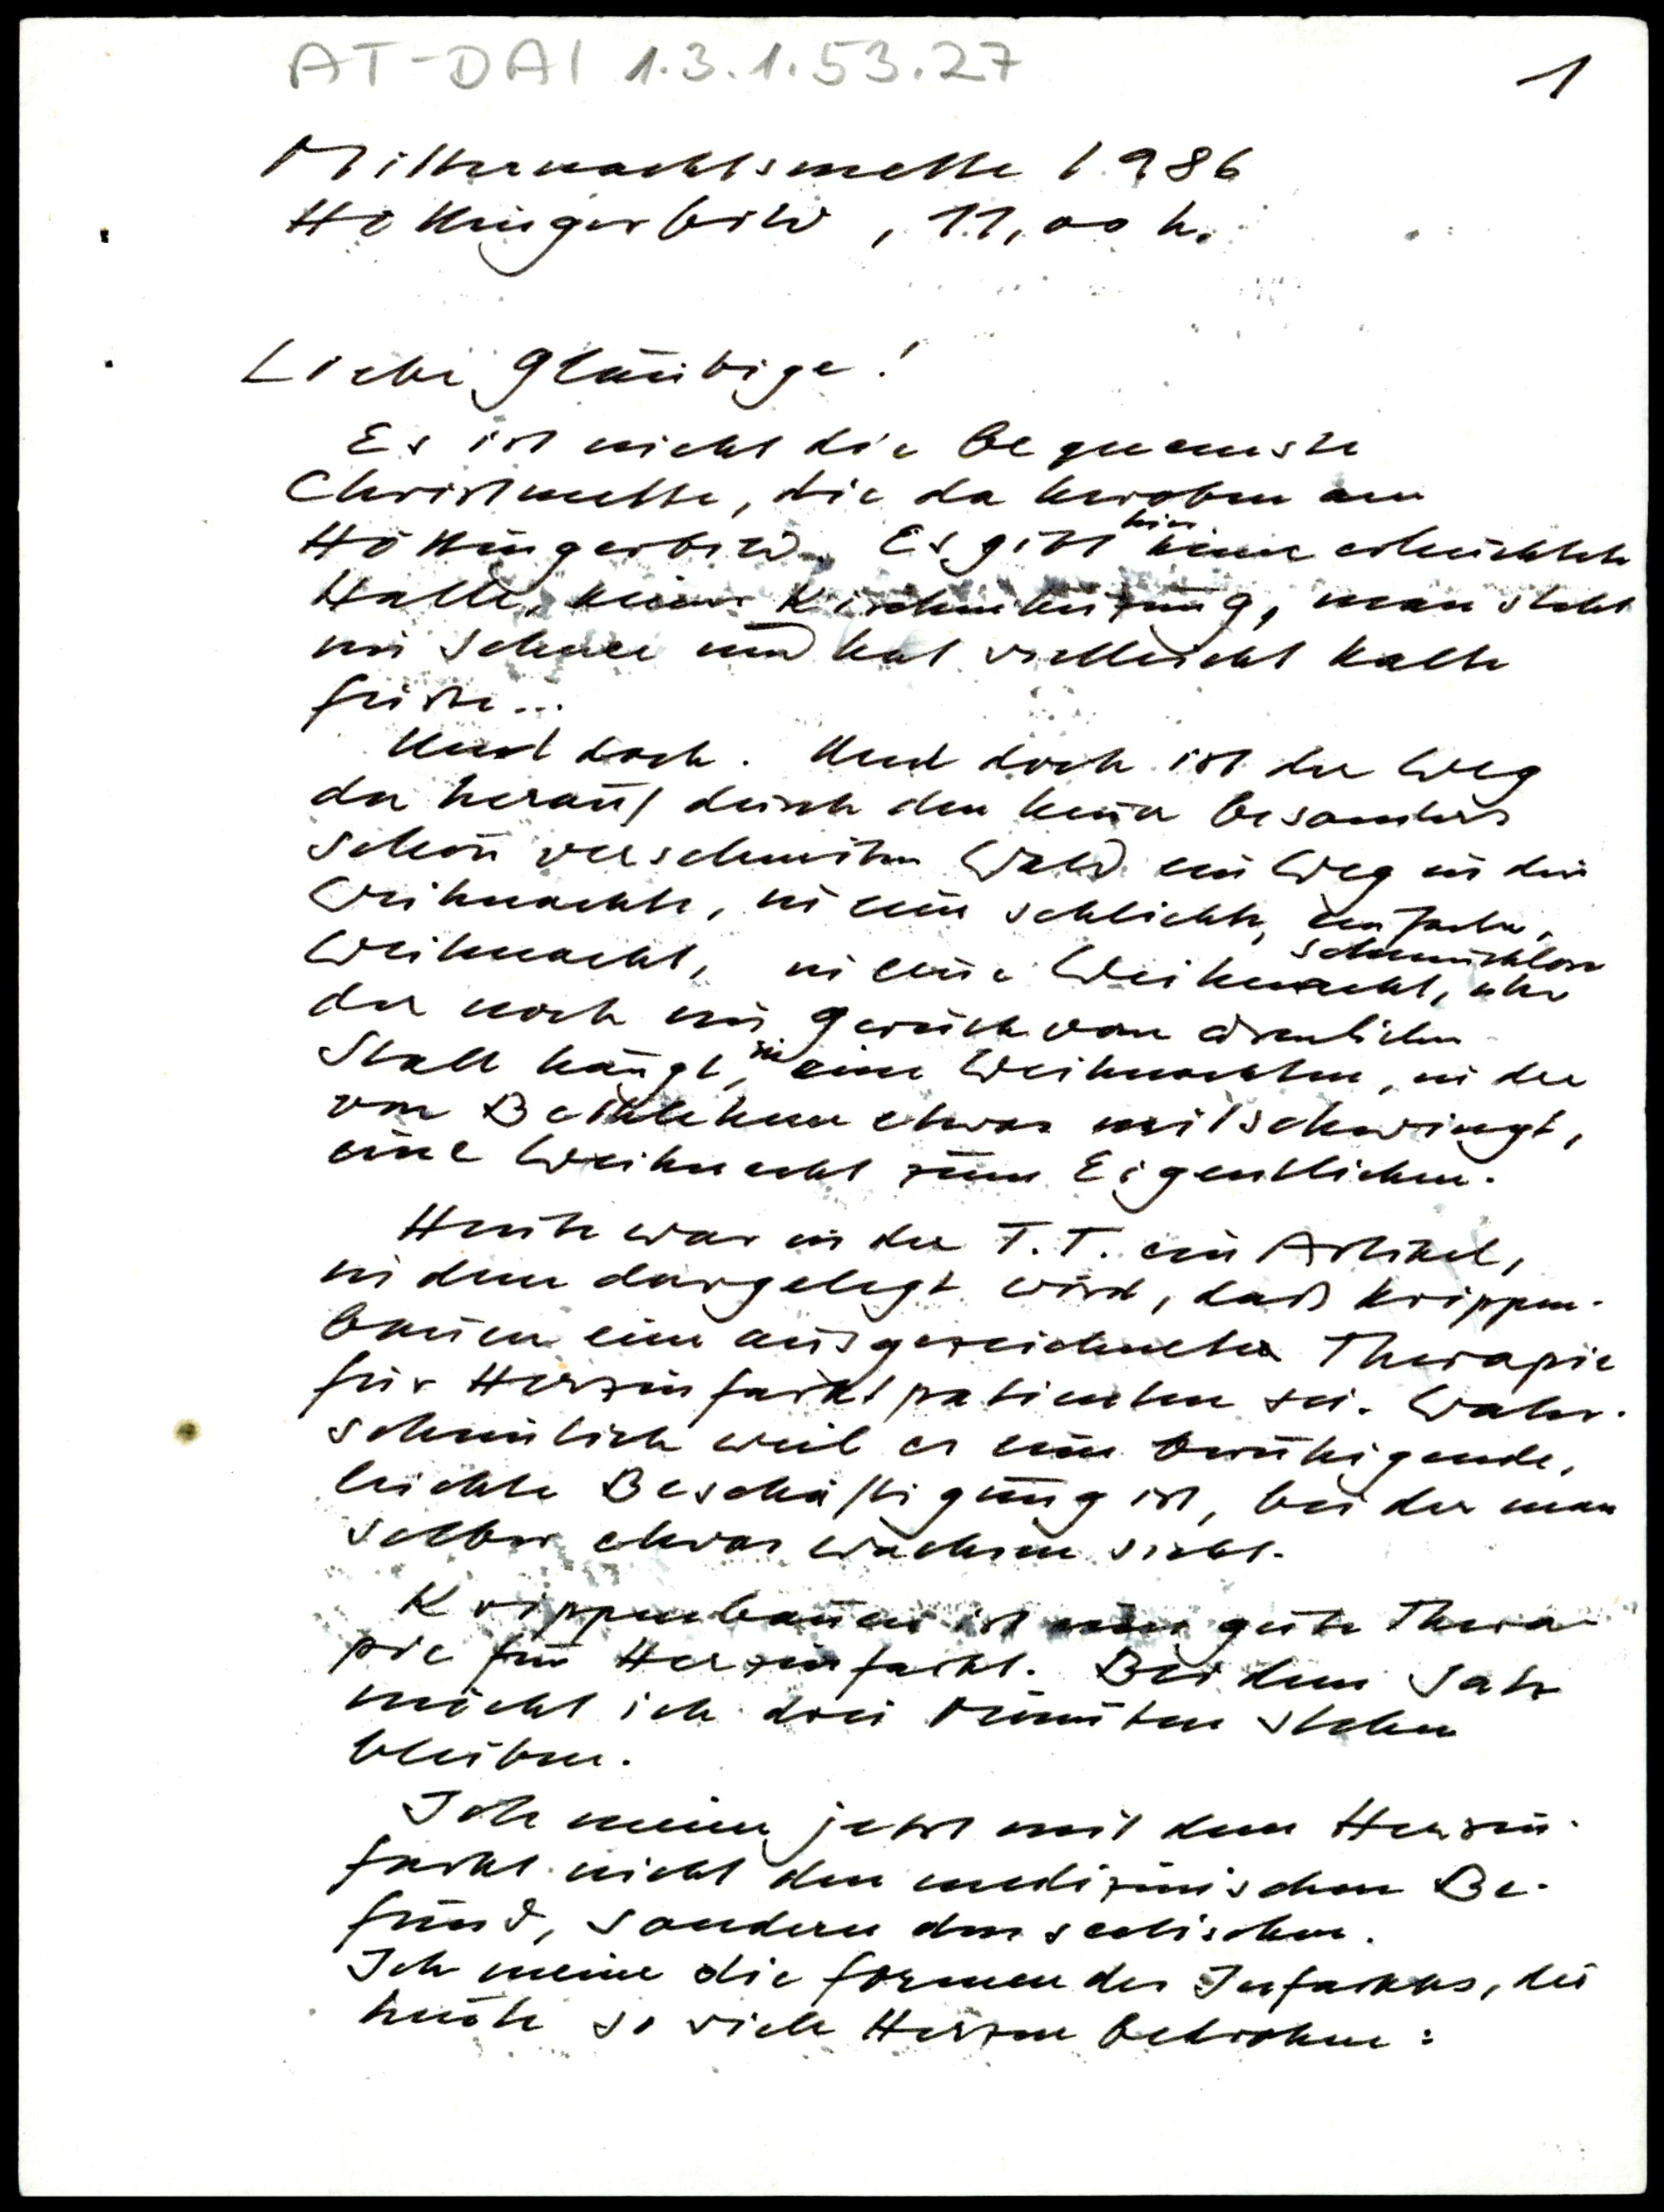 AT-DAI 1.3.1.53.27
1
Mitternachtsmette 1986
Höttingerbild, 11,00 h.
Liebe Gläubige!
Es ist nicht die bequemste
Christmette, die da heroben am
Höttingerbild. Es gibt hier keine erleuchtete
Halle, keine Kirchenheizung, man steht
im Schnee und hat vielleicht kalte
Füße...
Und doch. Und doch ist der Weg
da herauf durch den heuer besonders
schön verschneiten Wald ein Weg in die
Weihnacht, in eine schlichte, einfache,
schmucklose
Weihnacht, in eine Weihnacht, über
der noch ein Geruch vom ärmlichen
Stall hängt, in eine Weihnachten, in der
von Bethlehem etwas mitschwingt,
eine Weihnacht zum Eigentlichen.
Heute war in der T.T. ein Artikel,
in dem dargelegt wird, daß Krippen-
bauen eine ausgezeichnete Therapie
für Herzinfarktpatienten sei. Wahr-
scheinlich weil es eine beruhigende,
leichte Beschäftigung ist, bei der man
selber etwas wachsen sieht.
Krippenbauen ist eine gute Thera-
pie für Herzinfarkt. Bei dem Satz
möcht ich drei Minuten stehen
bleiben.
Ich meine jetzt mit dem Herzin-
farkt nicht den medizinischen Be-
fund, sondern den seelischen.
Ich meine die Formen des Infarkts, die
heute so viele Herzen bedrohen: